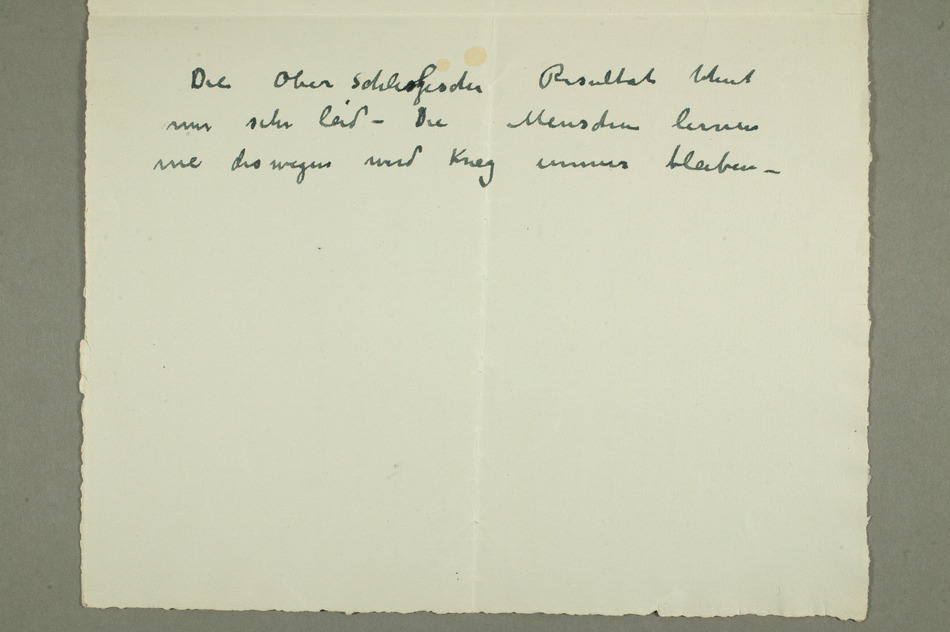 Die Ober Schlesische Resultat thut
mir sehr leid - Die Menschen lernen
nie deswegen wird Krieg immer bleiben -